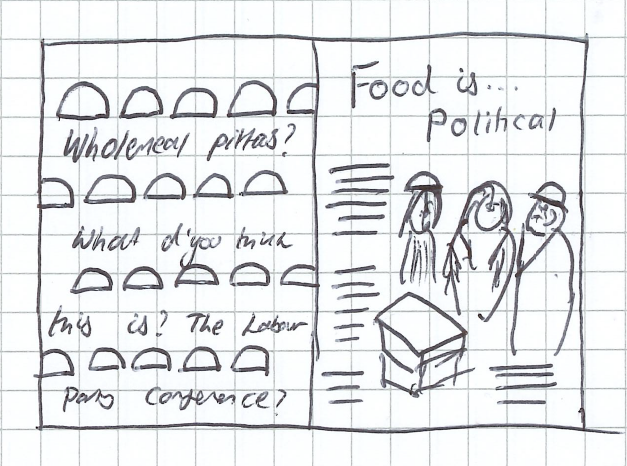 Wholemeal pittas?
What d'you think
this is? The Labour
Party Conference?
Food is...
Political